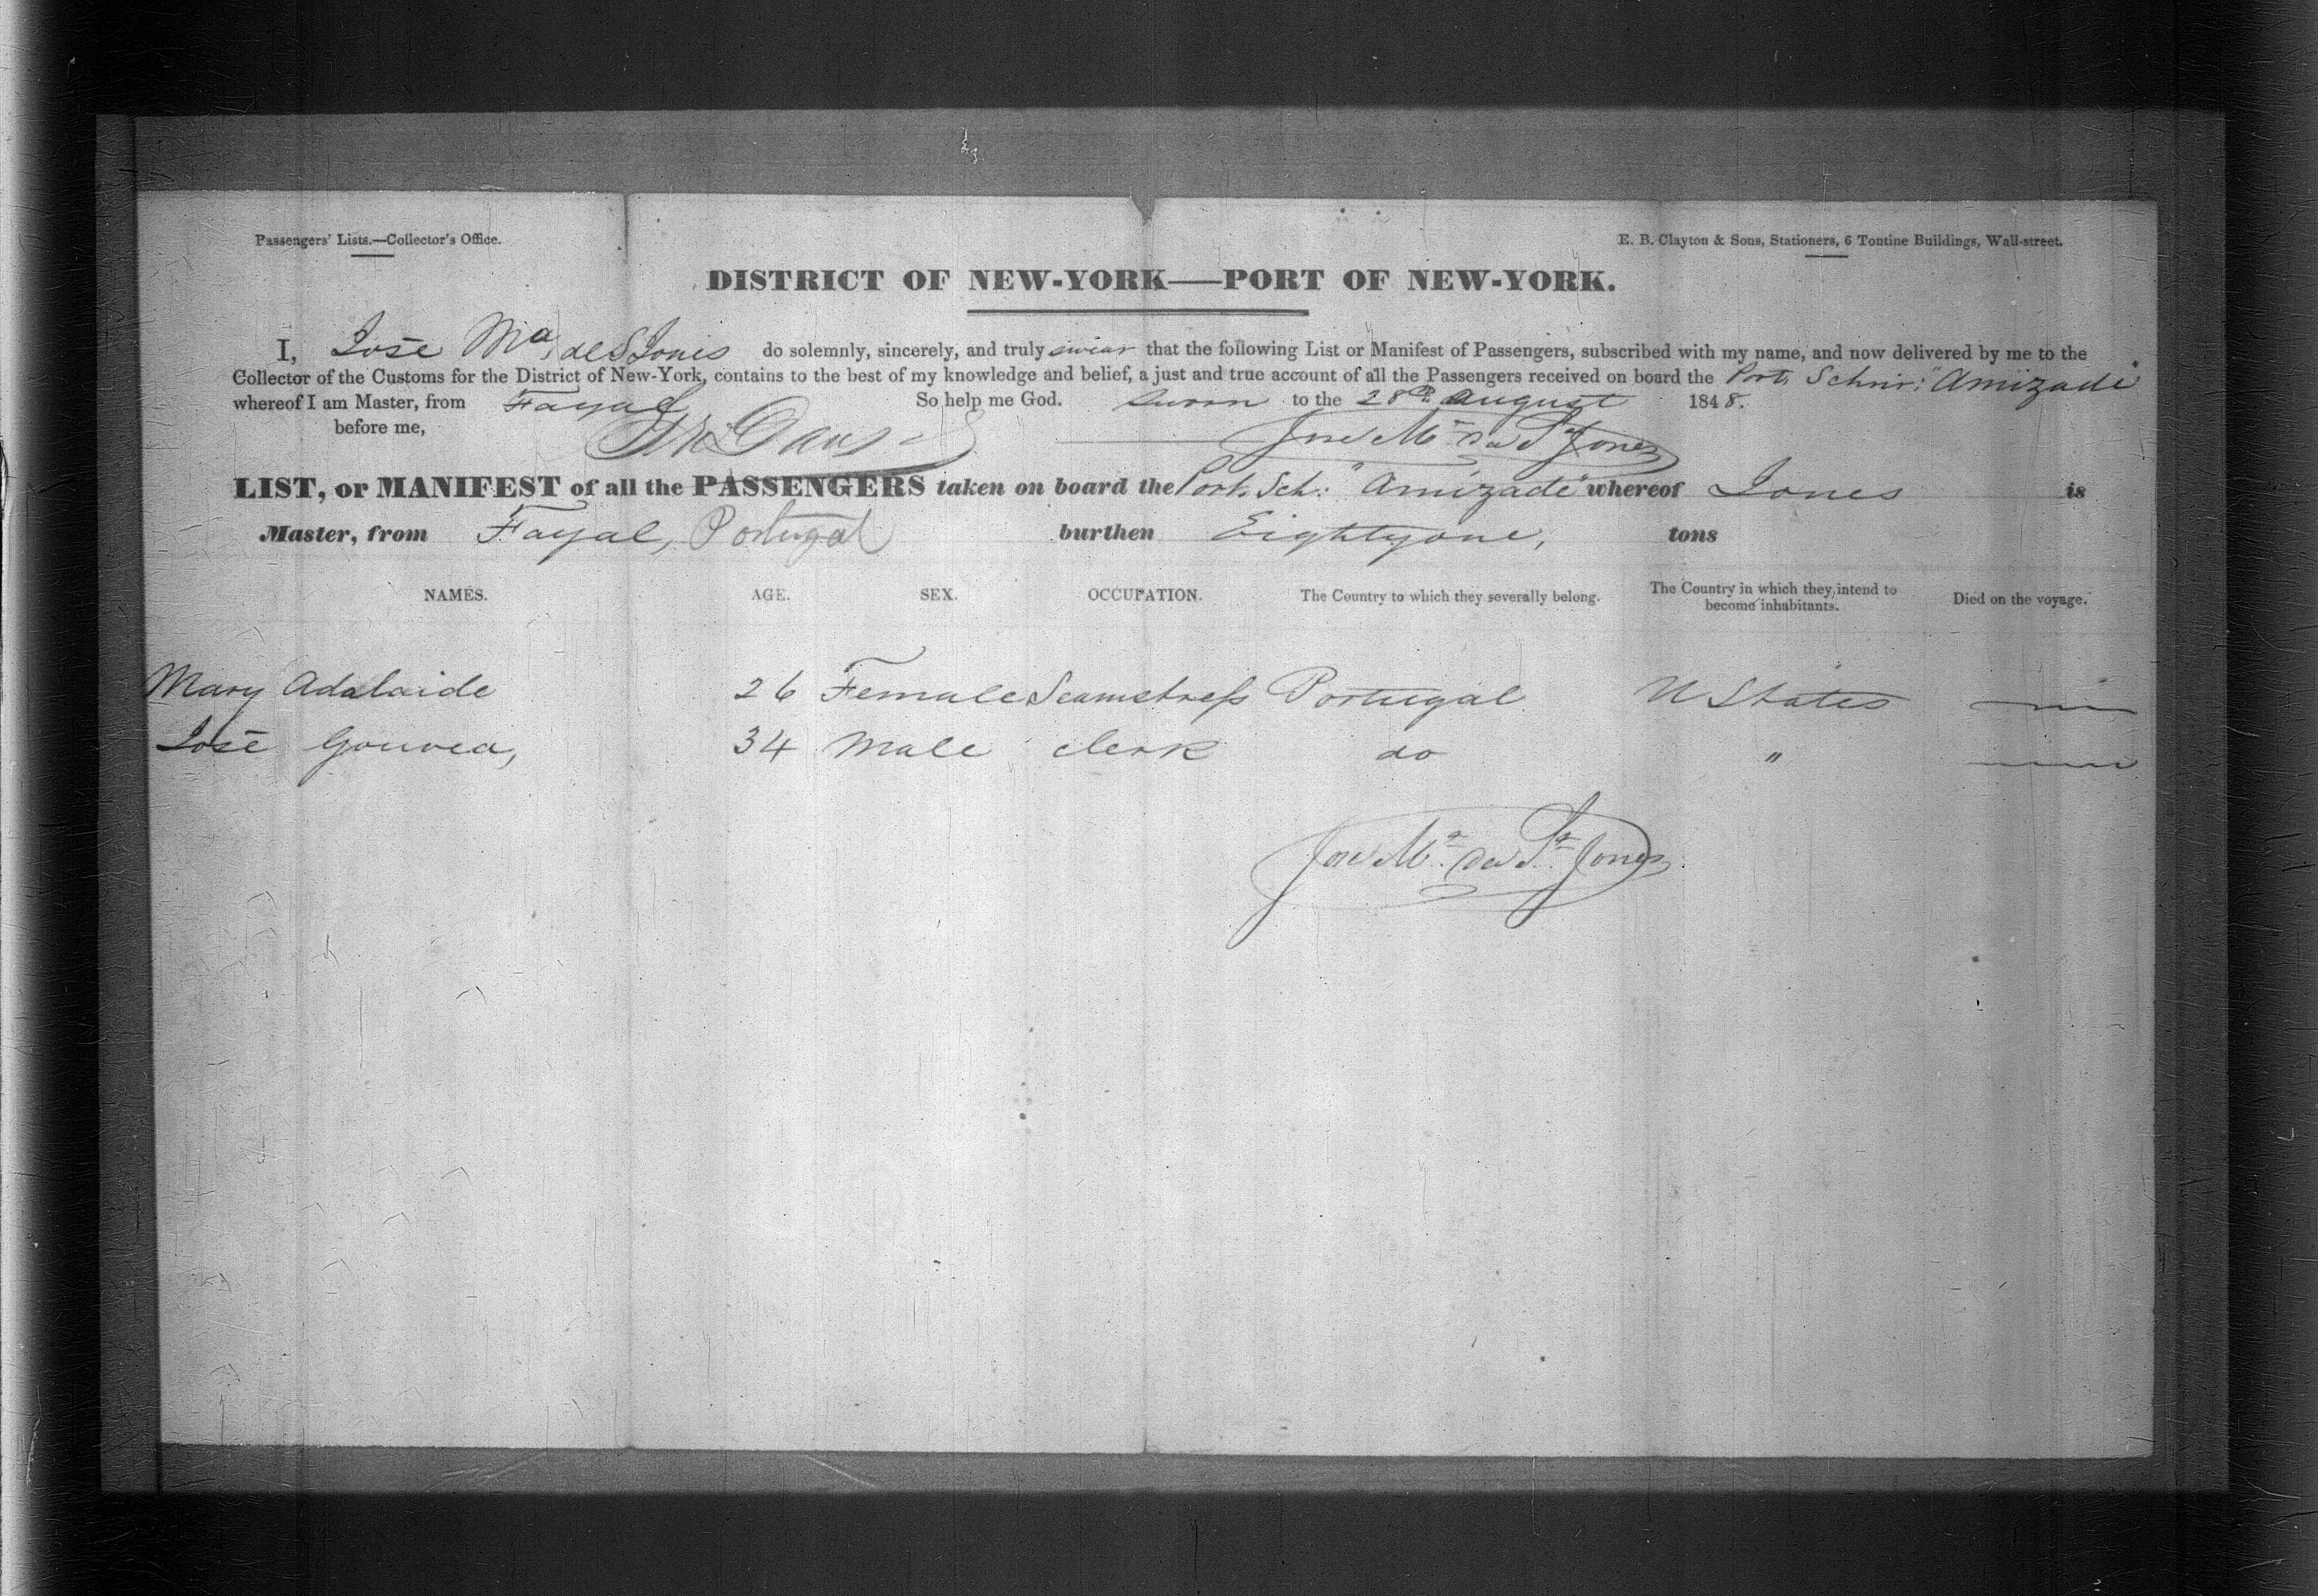 Passengers' Lists.—Collector's Office.
E. B. Clayton & Sons, Stationers, 6 Tontine Buildings, Wall-street.
DISTRICT OF NEW-YORK—PORT OF NEW-YORK.
I, José Ma. de S Jones do solemnly, sincerely, and truly swear that the following List or Manifest of Passengers, subscribed with my name, and now delivered by me to the
Collector of the Customs for the District of New-York, contains to the best of my knowledge and belief, a just and true account of all the Passengers received on board the Port. Schnr: "Amizade"
whereof I am Master, from Fayal So help me God. Sworn to the 28th August 1848.
before me, Jose Ma da Sa Jones
LIST, or MANIFEST of all the PASSENGERS taken on board the Port. Sch: "Amizade" whereof Jones is
Master, from Fayal, Portugal burthen Eightyone, tons
NAMES. AGE. SEX. OCCUPATION. The Country to which they severally belong. The Country in which they intend to become inhabitants. Died on the voyage.
Mary Adalaide 26 Female Seamstress Portugal U States
José Gouvea, 34 Male clerk do "
Jose Ma da Sa Jones